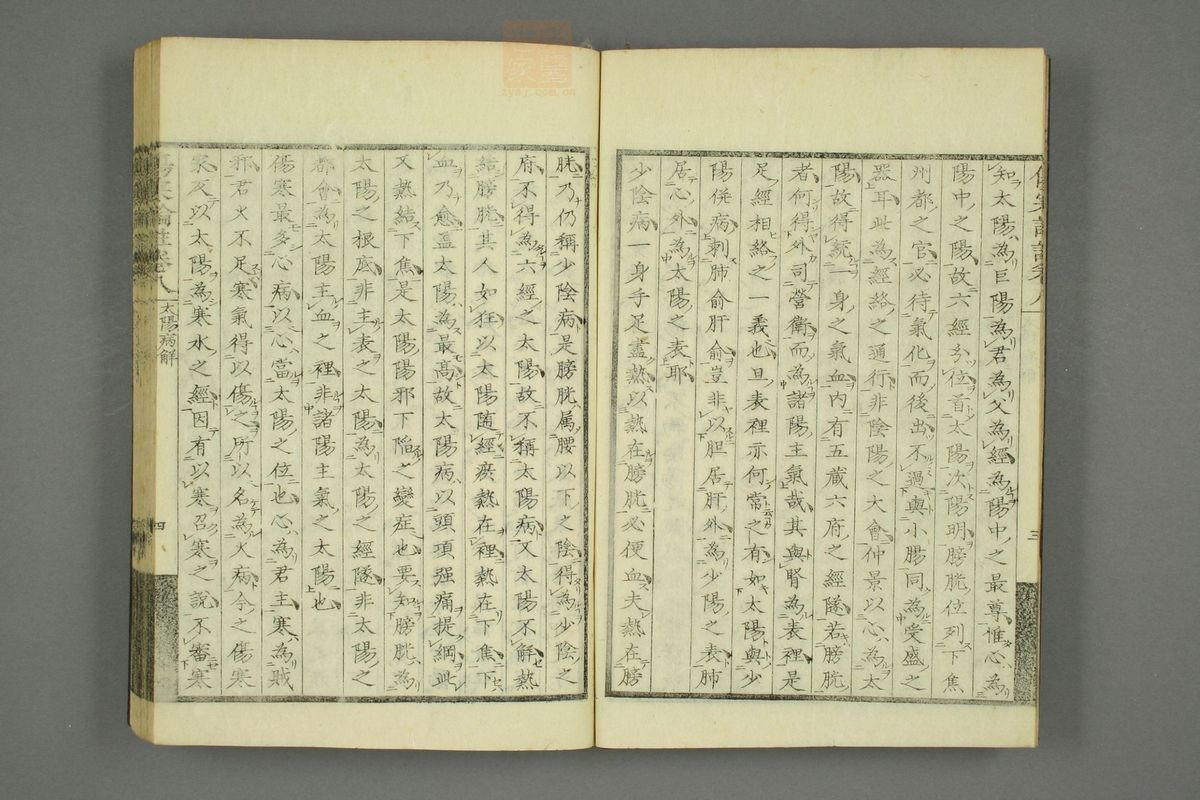 知太陽為巨陽為君為父為經為陽中之最尊惟心為
陽中之陽故六經分位首太陽次陽明膀胱位列下焦
州都之官必待氣化而後出不過與小腸同為受盛之
器耳此為經絡之通行非陰陽之大會仲景以心為太
陽故得統一身之氣血內有五藏六府之經隧若膀胱
者何得外司營衛而為諸陽主氣哉其與腎為表裡是
足經相絡之一義也且表裡亦何常之有如太陽與少
陽併病刺肺俞肝俞豈非以胆居肝外為少陽之表肺
居心外為太陽之表耶
少陰病一身手足盡熱以熱在膀胱必便血夫熱在膀
胱乃仍稱少陰病是膀胱属腰以下之陰得為少陰之
府不得為六經之太陽故不稱太陽病又太陽不解熱
結膀胱其人如狂以太陽隨經瘀熱在裡熱在下焦下
血乃愈蓋太陽為最高故太陽病以頭項强痛提綱此
又熱結下焦是太陽陽邪下陷之變症也要知膀胱為
太陽之根底非主表之太陽為太陽之經隧非太陽之
都會為太陽主血之裡非諸陽主氣之太陽也
傷寒最多心病以心當太陽之位也心為君主寒為賊
邪君火不足寒氣得以傷之所以名為大病今之傷寒
家反以太陽為寒水之經因有以寒召寒之說不審寒
太陽病解
三
四
zysj.com.cn